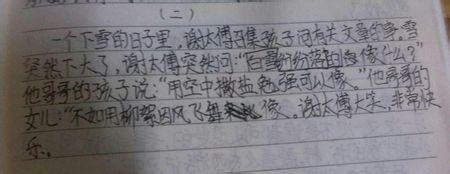 （二）
一个下雪的日子里，谢太傅召集孩子问有关文章的事。雪
突然下大了，谢太傅突然问：“白雪纷纷落的像什么？”
他哥哥的孩子说：“用空中撒盐勉强可以像。”他哥哥的
女儿：“不如用柳絮因风飞舞像。谢太傅大笑，非常快
乐。